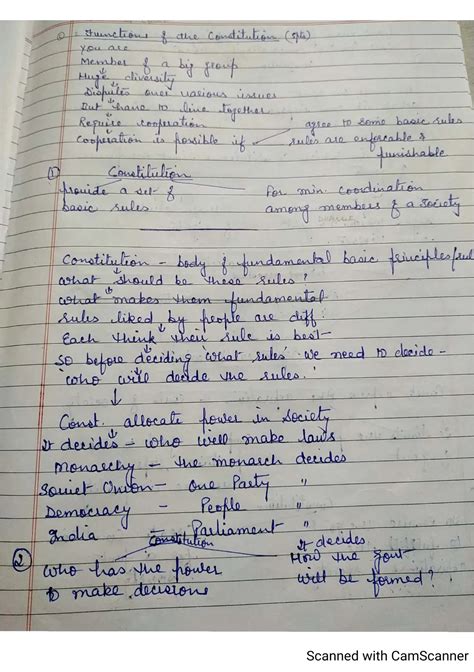 ① Functions of the Constitution (6pts)
You are
Member of a big group
Huge diversity
Disputes over various issues
But have to live together
Require cooperation
agree to some basic rules
Cooperation is possible if rules are enforcable &
punishable
① Constitution
provide a set of
basic rules
For min. coordination
among members of a society
Constitution - body of fundamental basic principles/
what should be these rules?
what makes them fundamental
rules liked by people are diff.
Each think their rule is best-
so before deciding 'what rules' we need to decide-
'who will decide the rules.'
Const. allocate power in Society
It decides - who will make laws
Monarchy - the monarch decides
Soviet Union - One Party "
Democracy - People "
India - Parliament "
② Constitution
who has the power
to make decisions
It decides
How the govt
will be formed?
Scanned with CamScanner